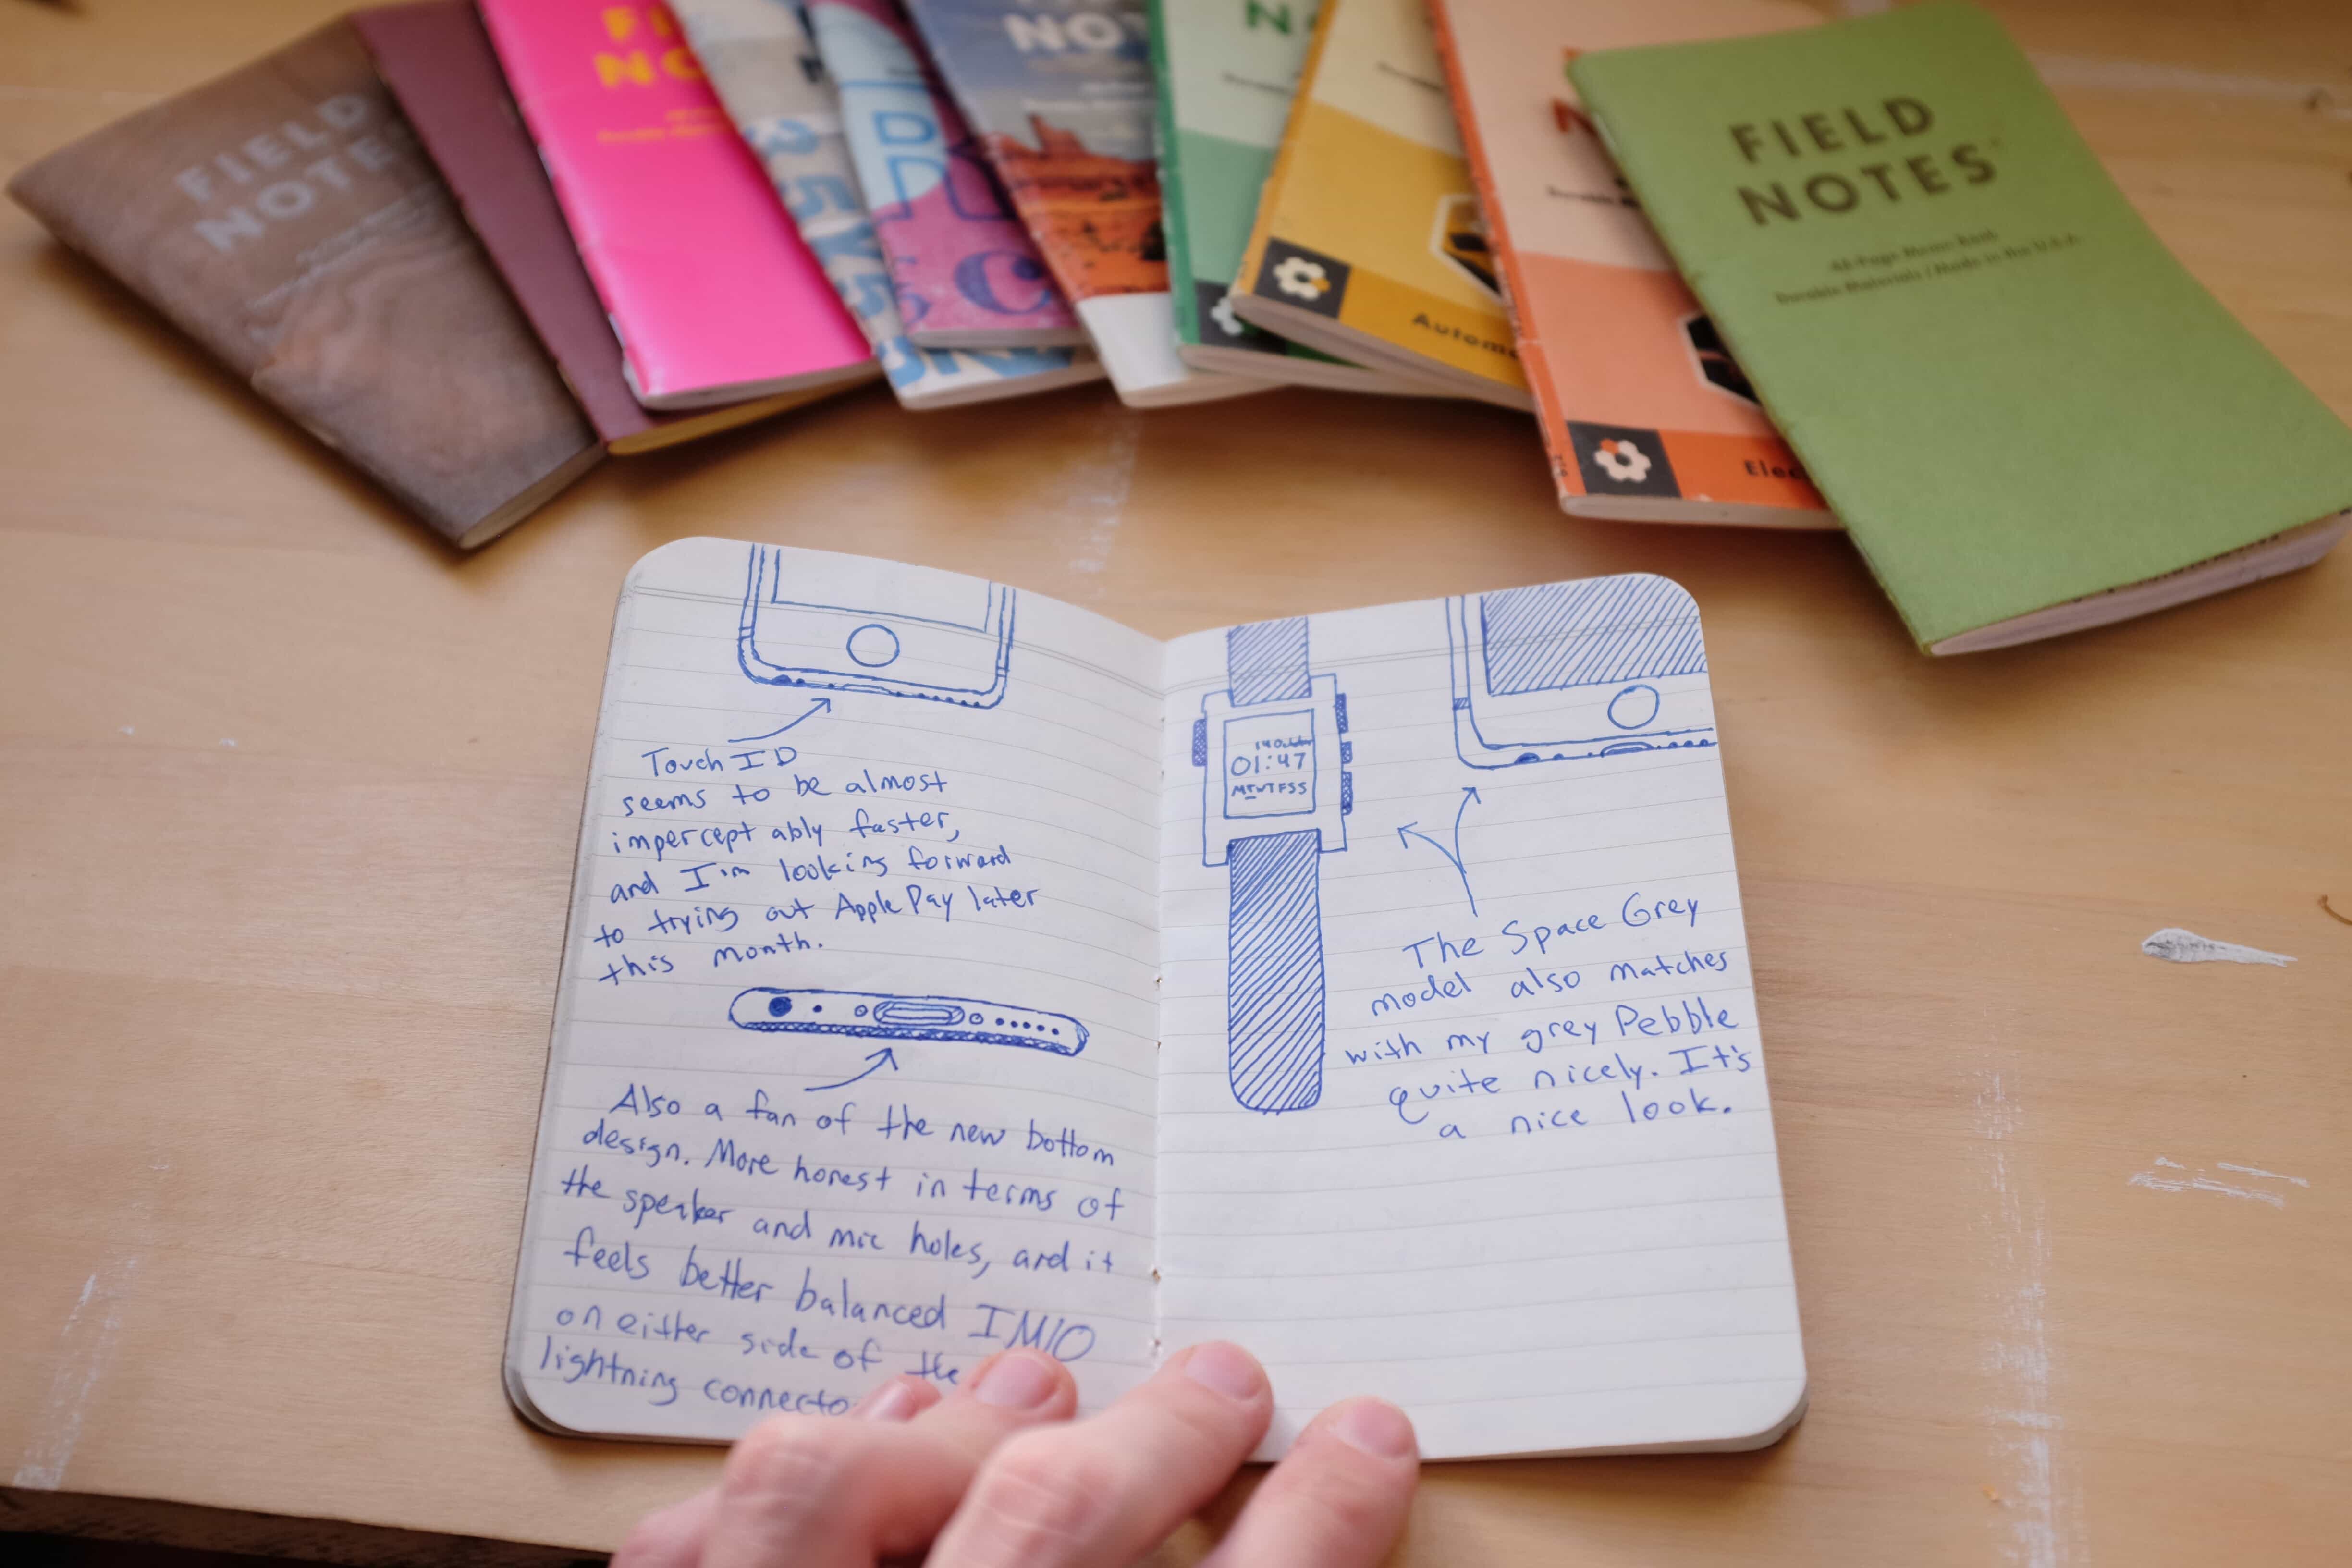 FIELD
NOTES
FI
NO
NO
N
FIELD
NOTES
48-Page Memo Book
Durable Materials / Made in the U.S.A.
Autom
Elec
Touch ID
seems to be almost
impercept ably faster,
and I'm looking forward
to trying out Apple Pay later
this month.
Also a fan of the new bottom
design. More honest in terms of
the speaker and mic holes, and it
feels better balanced IMO
on either side of the
lightning connecto
14 October
01:47
MTWTFSS
The Space Grey
model also matches
with my grey Pebble
quite nicely. It's
a nice look.